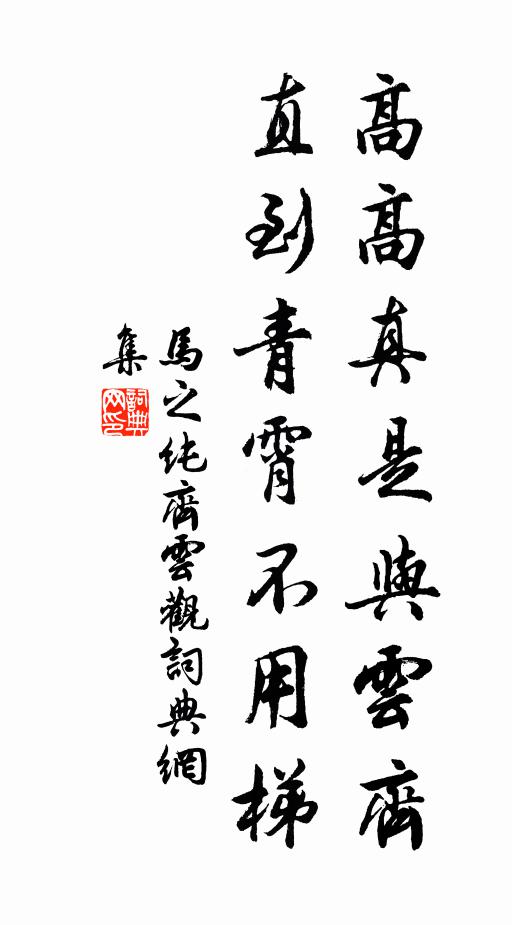 高高真是與雲齊
直到青霄不用梯
馬之純齊雲觀詞典網
集
詞典
网印